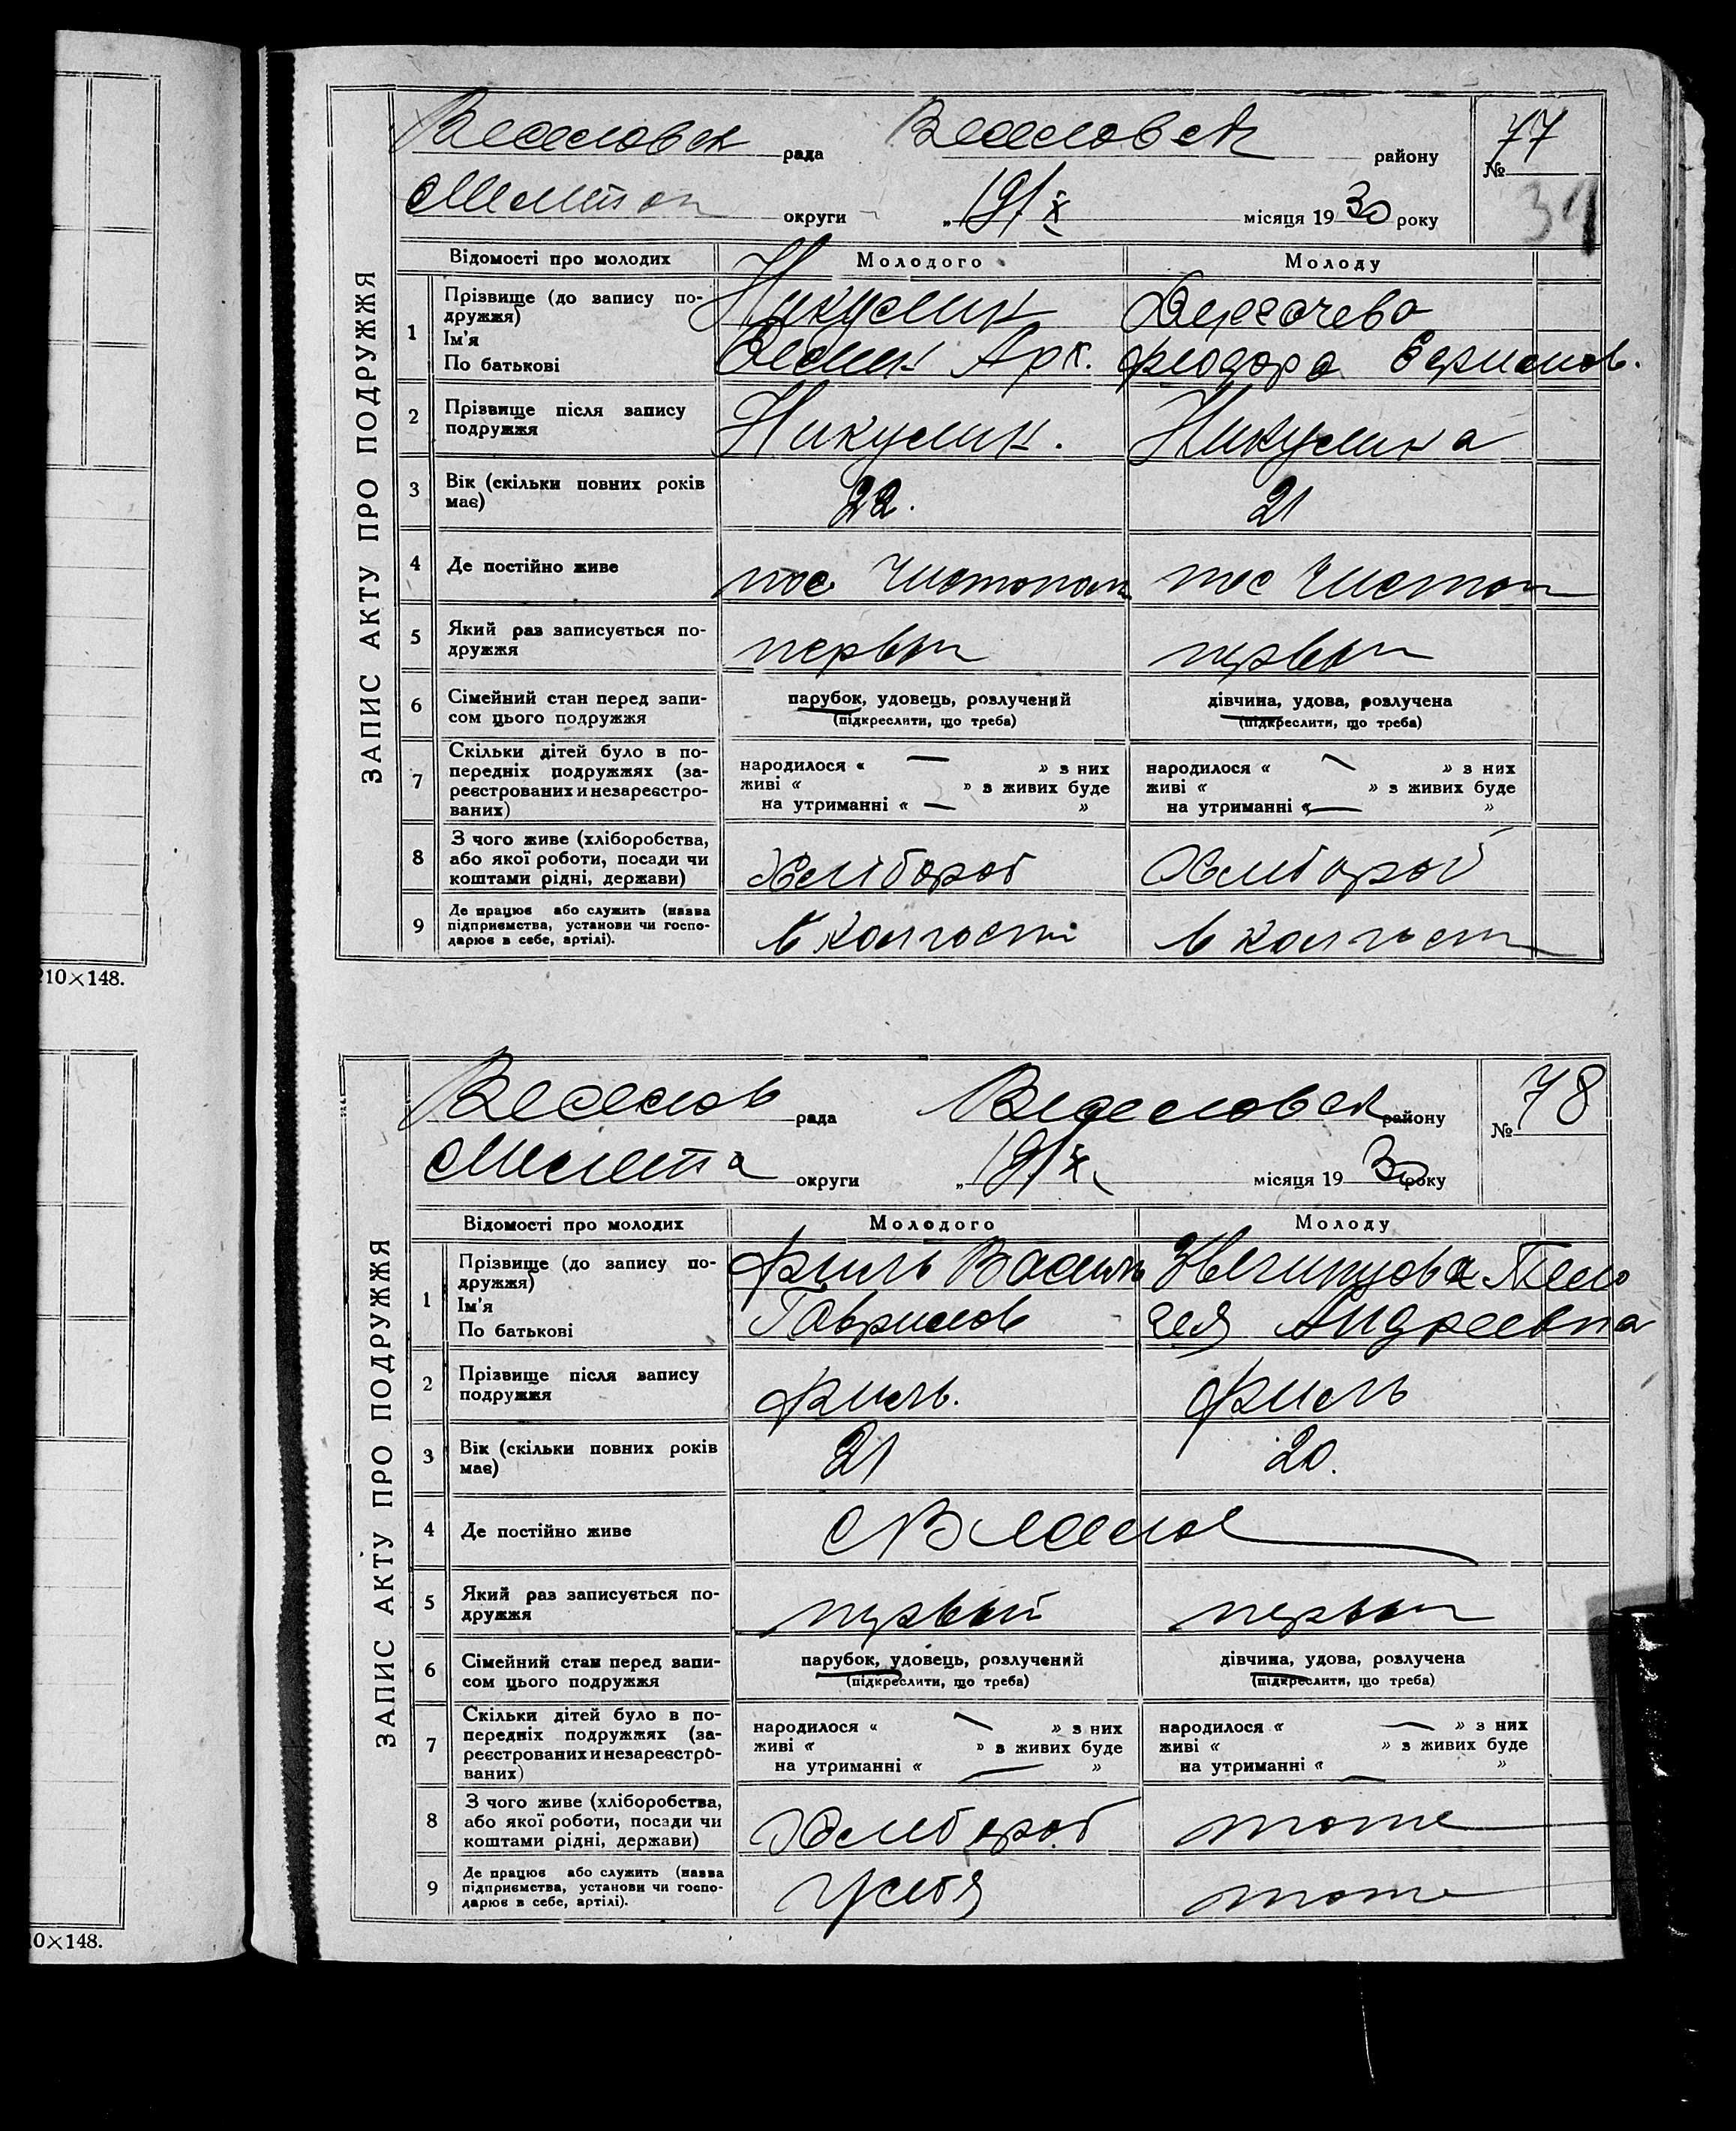 210×148.
0×148.
ЗАПИС АКТУ ПРО ПОДРУЖЖЯ
Веселовск рада Веселовск району № 77
Мелитоп округи „19/X місяця 1930 року 39
Відомості про молодих Молодого Молоду
1 Прізвище (до запису по-
дружжя) Никулин
Ім'я
По батькові Арк. Феодора
2 Прізвище після запису
подружжя Никулин. Никулина
3 Вік (скільки повних років
має) 22. 21
4 Де постійно живе пос. Чистопол пос Чистоп
5 Який раз записується по-
дружжя первый первый
6 Сімейний стан перед запи-
сом цього подружжя парубок, удовець, розлучений дівчина, удова, розлучена
(підкреслити, що треба) (підкреслити, що треба)
7 Скільки дітей було в по-
передніх подружжях (за-
реєстрованих и незареєстро-
ваних) народилося « — » з них народилося « — » з них
живі « » з живих буде живі « » з живих буде
на утриманні « — » на утриманні « — »
8 З чого живе (хліборобства,
або якої роботи, посади чи
коштами рідні, держави) Хлібороб Хлібороб
9 Де працює або служить (назва
підприємства, установи чи госпо-
дарює в себе, артілі). в колгості в колгост
ЗАПИС АКТУ ПРО ПОДРУЖЖЯ
Веселов рада Веселовск району № 78
Мелита округи „19/X місяця 1930 року
Відомості про молодих Молодого Молоду
1 Прізвище (до запису по-
дружжя) Филь Василь
Ім'я
По батькові Гаврилов Андреевна
2 Прізвище після запису
подружжя Филь. Филь
3 Вік (скільки повних років
має) 21 20.
4 Де постійно живе с Весело
5 Який раз записується по-
дружжя первый первый
6 Сімейний стан перед запи-
сом цього подружжя парубок, удовець, розлучений дівчина, удова, розлучена
(підкреслити, що треба) (підкреслити, що треба)
7 Скільки дітей було в по-
передніх подружжях (за-
реєстрованих и незареєстро-
ваних) народилося « — » з них народилося « — » з них
живі « » з живих буде живі « » з живих буде
на утриманні « — » на утриманні « — »
8 З чого живе (хліборобства,
або якої роботи, посади чи
коштами рідні, держави) Хлібороб тоже
9 Де працює або служить (назва
підприємства, установи чи госпо-
дарює в себе, артілі). У себя тоже